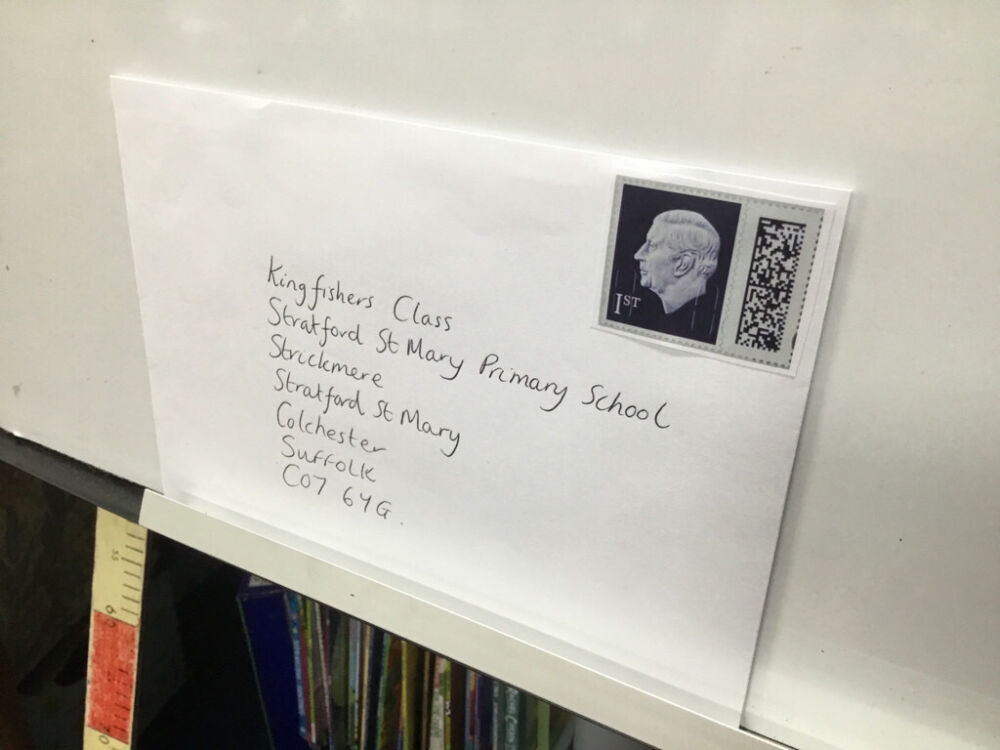 1ST
Kingfishers Class
Stratford St Mary Primary School
Strickmere
Stratford St Mary
Colchester
Suffolk
CO7 6YG.